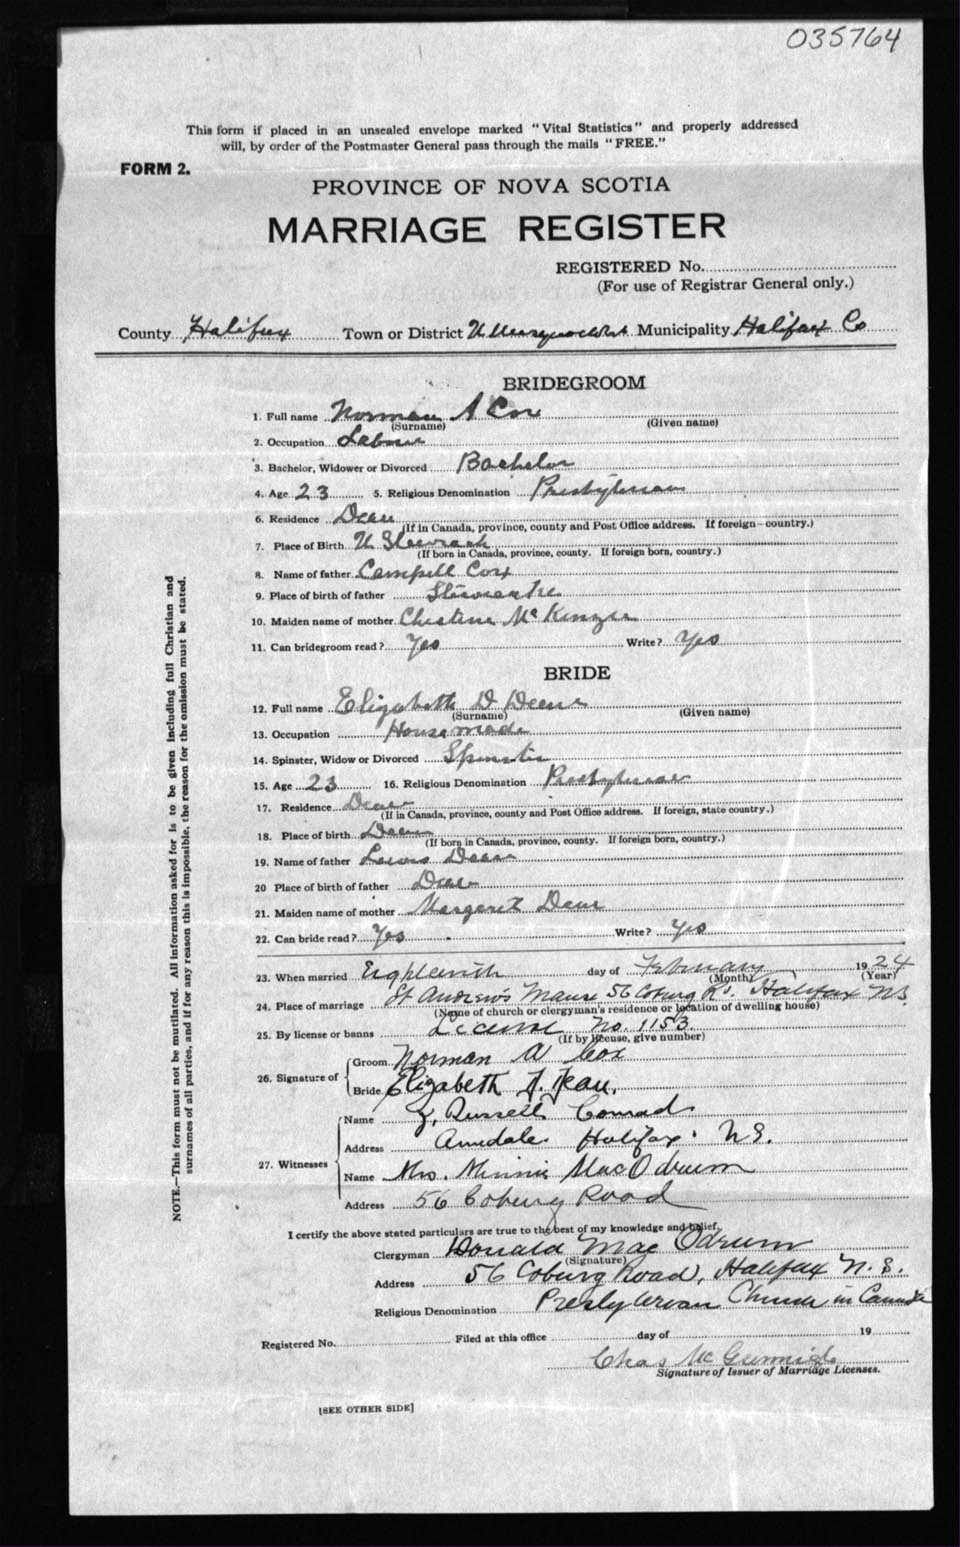 035764
This form if placed in an unsealed envelope marked "Vital Statistics" and properly addressed
will, by order of the Postmaster General pass through the mails "FREE."
FORM 2.
PROVINCE OF NOVA SCOTIA
MARRIAGE REGISTER
REGISTERED No.
(For use of Registrar General only.)
County Halifax Town or District Municipality Halifax Co
BRIDEGROOM
1. Full name Norman A Cox
(Surname) (Given name)
2. Occupation
3. Bachelor, Widower or Divorced Bachelor
4. Age 23 5. Religious Denomination Presbyterian
6. Residence
(If in Canada, province, county and Post Office address. If foreign—country.)
7. Place of Birth U
(If born in Canada, province, county. If foreign born, country.)
8. Name of father Campbell Cox
9. Place of birth of father
10. Maiden name of mother Christina McKenzie
11. Can bridegroom read? Yes Write? Yes
BRIDE
12. Full name Elizabeth D
(Surname) (Given name)
13. Occupation House made
14. Spinster, Widow or Divorced Spinster
15. Age 23 16. Religious Denomination Presbyterian
17. Residence
(If in Canada, province, county and Post Office address. If foreign, state country.)
18. Place of birth
(If born in Canada, province, county. If foreign born, country.)
19. Name of father Lewis
20 Place of birth of father
21. Maiden name of mother Margaret
22. Can bride read? Yes Write? Yes
23. When married Eighteenth day of February 1924
(Month) (Year)
24. Place of marriage St Andrew's Manse 56 Coburg Rd. Halifax N.S.
(Name of church or clergyman's residence or location of dwelling house)
25. By license or banns License No. 1153
(If by license, give number)
26. Signature of
Groom Norman A Cox
Bride Elizabeth
27. Witnesses
Name Russell Conrad
Address Armdale Halifax N.S.
Name Mrs. Minnie MacOdrum
Address 56 Coburg Road
I certify the above stated particulars are true to the best of my knowledge and belief,
Clergyman Donald MacOdrum
(Signature)
Address 56 Coburg Road, Halifax N.S.
Religious Denomination Presbyterian Church in Canada
Registered No. Filed at this office day of 19
Chas
Signature of Issuer of Marriage Licenses.
[SEE OTHER SIDE]
NOTE.—This form must not be mutilated. All information asked for is to be given including full Christian and
surnames of all parties, and if for any reason this is impossible, the reason for the omission must be stated.